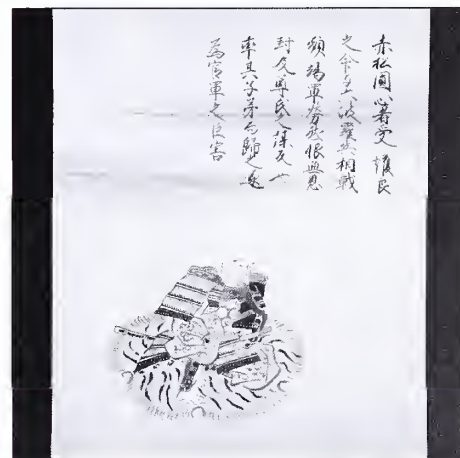 赤松圓心嘗受 護良
之令与六波羅兵相戦
頻竭軍労然恨無恩
封及尊氏之謀反也
率其子弟而歸之遂
為官軍之巨害